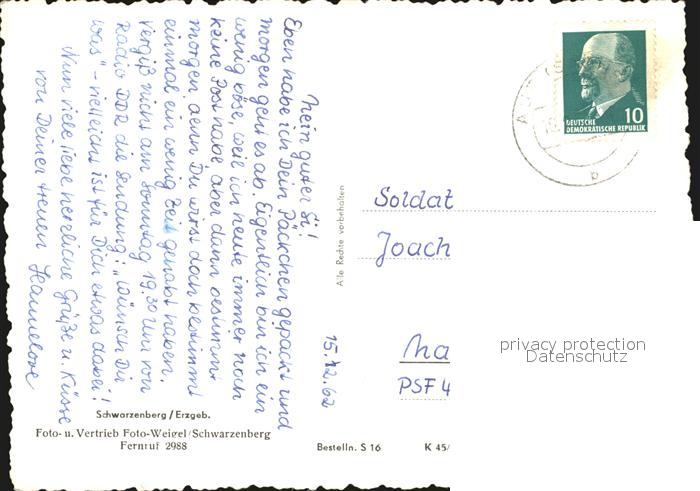 Mein guter Si!
Eben habe ich Dein Päckchen gepackt und
morgen geht es ab. Eigentlich bin ich ein
wenig böse, weil ich heute immer noch
keine Post habe, aber dann bestimmt
morgen, denn Du wirst doch bestimmt
einmal ein wenig Zeit gehabt haben.
Vergiß nicht am Sonntag 19.30 Uhr von
Radio DDR die Sendung: „Wünsch Dir
was" - vielleicht ist für Dich etwas dabei!
Nun viele liebe herzliche Grüße u. Küsse
von Deiner treuen Hannelore
15.12.62
Schwarzenberg / Erzgeb.
Foto- u. Vertrieb Foto-Weigel / Schwarzenberg
Fernruf 2988
Bestelln. S 16 K 45/
Alle Rechte vorbehalten
10
DEUTSCHE
DEMOKRATISCHE REPUBLIK
b
Soldat
Joach
Ha
PSF 4
privacy protection
Datenschutz